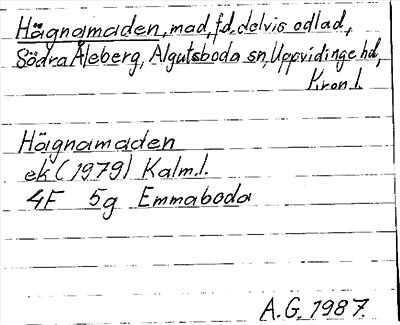 Hägnamaden, mad, f.d. delvis odlad,
Södra Åleberg, Algutsboda sn, Uppvidinge hd,
Kron.l.
Hägnamaden
ek (1979) Kalm.l.
4F 5g Emmaboda
A.G. 1987.